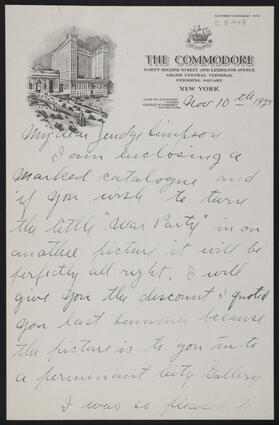 C 3-448
THE COMMODORE
FORTY-SECOND STREET AND LEXINGTON AVENUE
GRAND CENTRAL TERMINAL
PERSHING SQUARE
NEW YORK
Nov 10th 1927
My dear Judge Simpson
I am enclosing a
marked catalogue and
if you wish to turn
the little "War Party" in on
another picture it will be
perfectly all right. I will
give you the discount I quoted
you last summer because
the picture is to go into
a permanent City Gallery
I was so pleased to